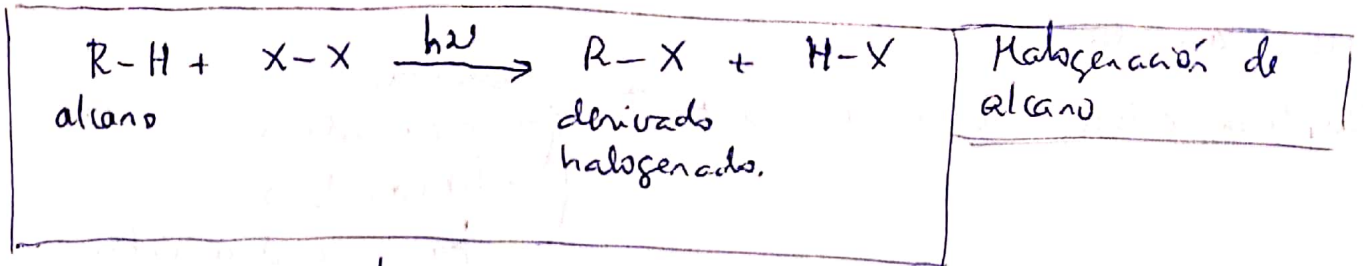 hν
R-H + X-X → R-X + H-X
alcano derivado
halogenado.
Halogenación de
alcano